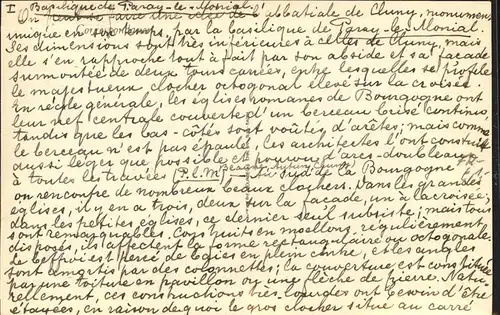 I Basilique de Paray-le-Monial.
On peut se faire une idée de l'Abbatiale de Cluny, monument
unique en son temps, par la Basilique de Paray-le-Monial.
Ses dimensions sont très inférieures à celles de Cluny, mais
elle s'en rapproche tout à fait par son abside et sa façade
surmontée de deux tours carrées, entre lesquelles se profile
le majestueux clocher octogonal élevé sur la croisée.
En règle générale, les églises romanes de Bourgogne ont
leur nef centrale couverte d'un berceau brisé continu,
tandis que les bas-côtés sont voûtés d'arêtes; mais comme
le berceau n'est pas épaulé, les architectes l'ont construit
aussi léger que possible et pourvu d'arcs-doubleaux
à toutes les travées (P.l.M) sud de la Bourgogne
on rencontre de nombreux beaux clochers. Dans les grandes
églises, il y en a trois, deux sur la façade, un à la croisée;
dans les petites églises, ce dernier seul subsiste; mais tous
sont remarquables. Construits en moellons, régulièrement
disposés, ils affectent la forme rectangulaire ou octogonale,
le beffroi est percé de baies en plein cintre, et les angles
sont amortis par des colonnettes; la couverture est constituée
par une toiture en pavillon ou une flèche de pierre. Natu-
rellement, ces constructions très lourdes ont besoin d'être
étayées, en raison de quoi le gros clocher situé au carré